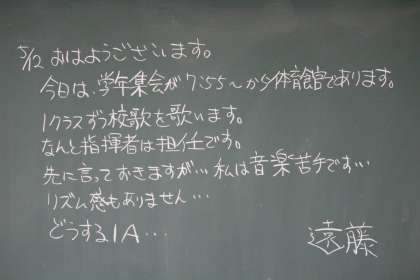 5/12 おはようございます。
今日は、学年集会が7:55～から体育館であります。
1クラスずつ校歌を歌います。
なんと指揮者は担任です。
先に言っておきますが… 私は音楽苦手です…
リズム感もありません…
どうする1A…
遠藤